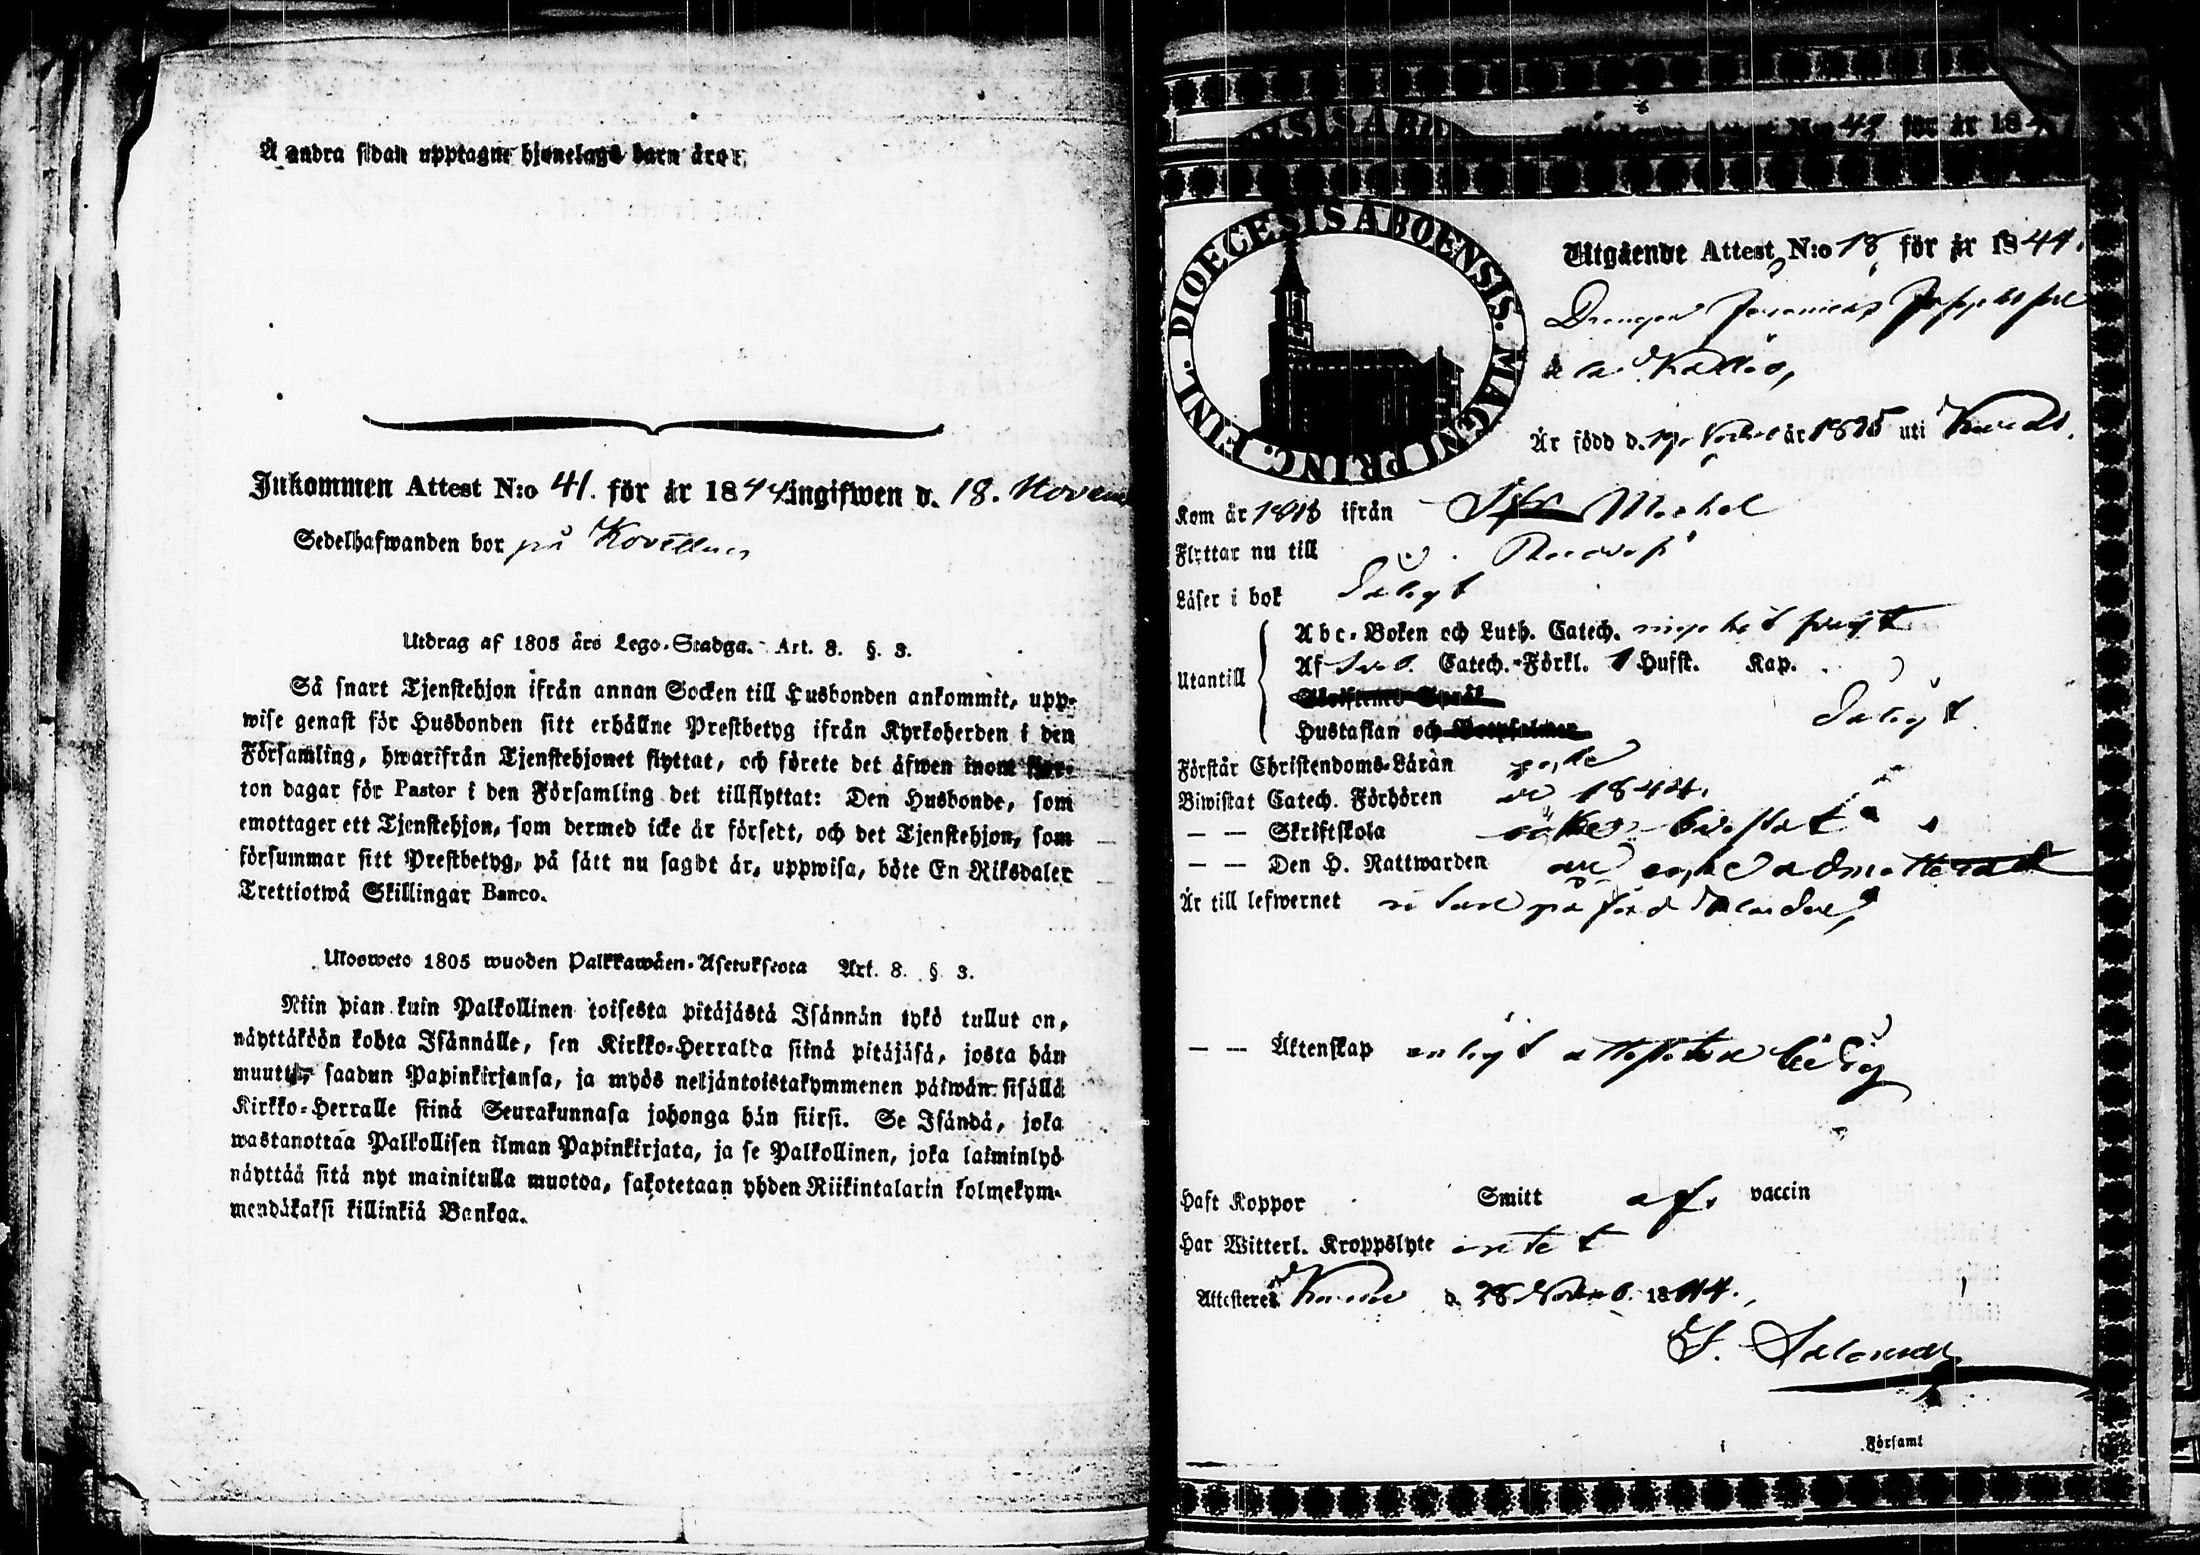 Å andra sidan upptagne hjonelags barn äro:
Inkommen Attest N:o 41. för år 1844 ingifwen d. 18. Novem
Sedelhafwanden bor på
Utdrag af 1805 års Lego-Stadga. Art. 8. §. 3.
Så snart Tjenstehjon ifrån annan Socken till Husbonden ankommit, upp-
wise genast för Husbonden sitt erhållne Prestbetyg ifrån Kyrkoherden i den
Församling, hwarifrån Tjenstehjonet flyttat, och förete det äfwen inom fjor-
ton dagar för Pastor i den Församling det tillflyttat: Den Husbonde, som
emottager ett Tjenstehjon, som dermed icke är försedt, och det Tjenstehjon, som
försummar sitt Prestbetyg, på sätt nu sagdt är, uppwisa, böte En Riksdaler
Trettiotwå Skillingar Banco.
Uloosweto 1805 wuoden Palkkawäen-Asetuksesta Art. 8. § 3.
Niin pian kuin Palkollinen toisesta pitäjästä Isännän tykö tullut on,
näyttäköön kohta Isännälle, sen Kirkko-Herralda siinä pitäjäsä, josta hän
muutti, saadun Papinkirjansa, ja myös neljäntoistakymmenen päiwän sisällä
Kirkko-Herralle siinä Seurakunnasa johonga hän siirsi. Se Isändä, joka
wastanottaa Palkollisen ilman Papinkirjata, ja se Palkollinen, joka laiminlyö
näyttää sitä nyt mainitulla muotoa, sakotetaan yhden Riikintalarin kolmekym-
mendäkaksi killinkiä Bankoa.
Attest N:o 42 för år 184
FINL. DIOECESIS ABOENSIS. MAGNI PRINC.
Utgående Attest N:o 18 för år 1844.
Drengen Jeremias Josephsson
Är född d. 19 år 1825 uti
Kom år 1818 ifrån
Flyttar nu till
Läser i bok Dåligt
Utantill
Abc-Boken och Luth. Catech.
Af Catech.-Förkl. 1 Hufst. Kap.
Hustaflan och Dåligt
Förstår Christendoms-Läran
Biwistat Catech. Förhören 1844.
— — Skriftskola
— — Den H. Nattwarden admitterad
Är till lefwernet
— — Äktenskap enligt attesten ledig
Haft Koppor Smitt af vaccin
Har Witterl. Kroppslyte intet
Attesteres d. 28 Novemb. 1844.
Församl